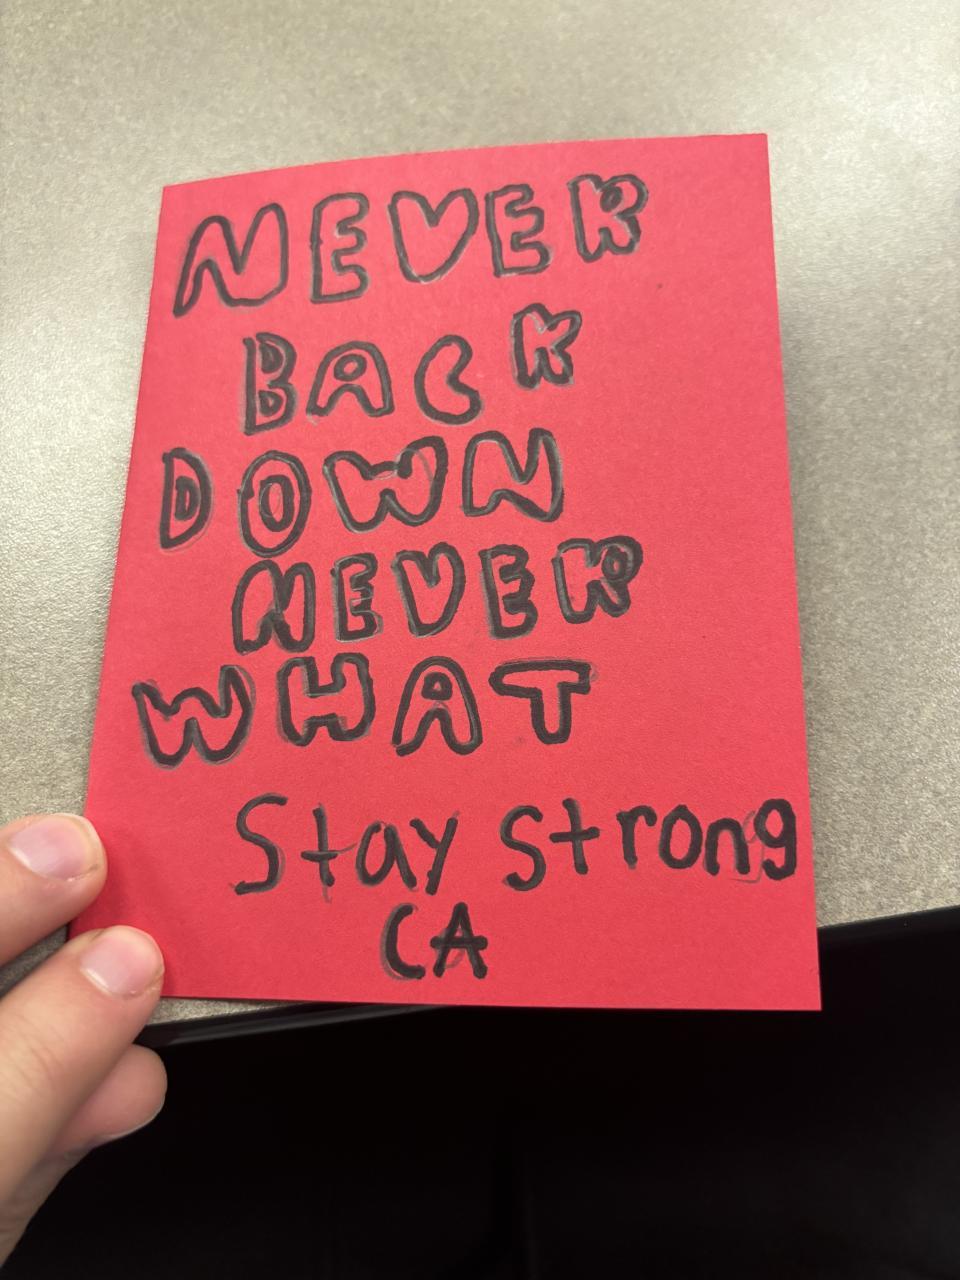 NEVER
BACK
DOWN
NEVER
WHAT
Stay strong
CA